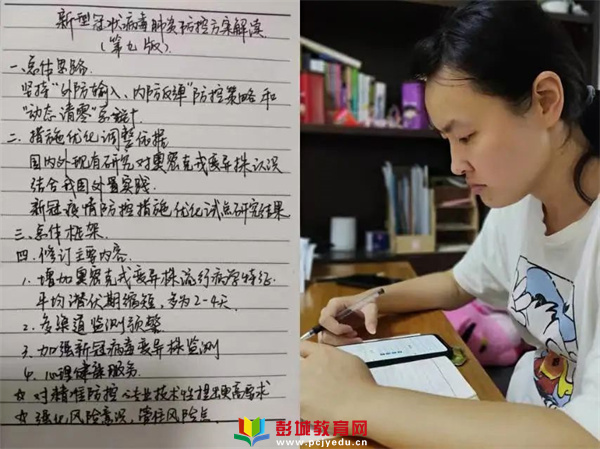 新型冠状病毒肺炎防控方案解读
(第九版)
一、总体思路
坚持“外防输入、内防反弹”防控策略和
“动态清零”总
二、措施优化调整依据
国内外现有研究对奥密克戎变异株认识
结合我国处置实践
新冠疫情防控措施优化试点研究结果
三、总体框架
四、修订主要内容
1、增加奥密克戎变异株流行病学特征
平均潜伏期缩短,多为2-4天
2、多渠道监测预警
3、加强新冠病毒变异株监测
4、心理健康服务
☆对精准防控、专业技术
☆强化风险意识,管住风险点
彭城教育网
www.pcjyedu.cn